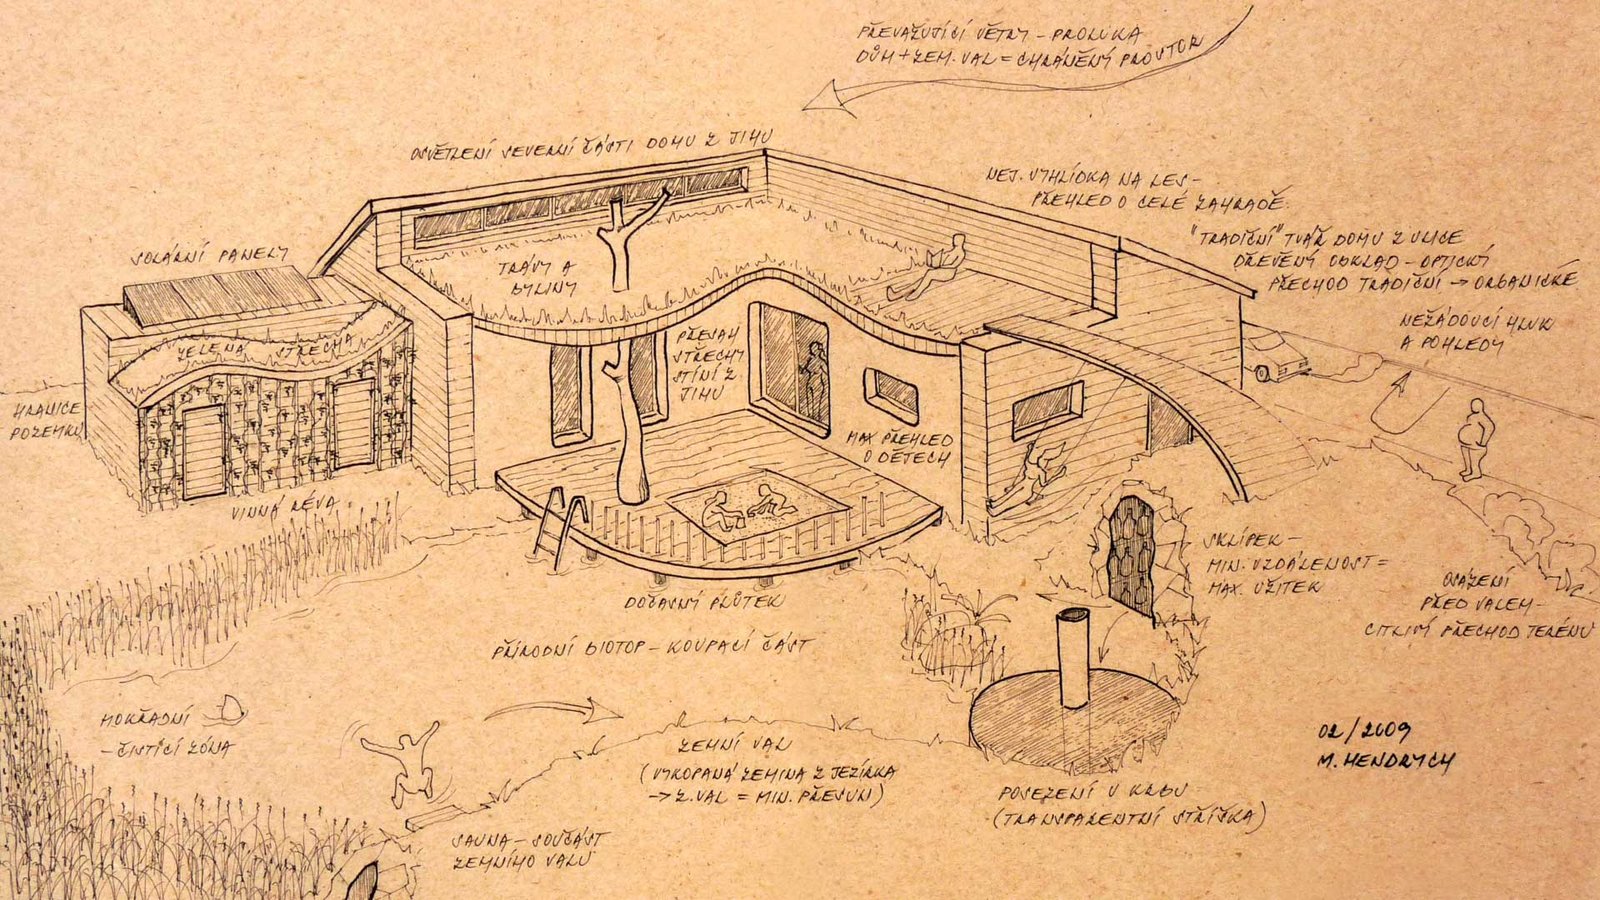 PŘEVAŽUJÍCÍ VĚTRY - PROLUKA
DŮM + ZEM. VAL = CHRÁNĚNÝ PROSTOR
OSVĚTLENÍ SEVERNÍ ČÁSTI DOMU Z JIHU
NEJ. VYHLÍDKA NA LES -
PŘEHLED O CELÉ ZAHRADĚ
SOLÁRNÍ PANELY
"TRADIČNÍ" TVÁŘ DOMU Z ULICE
DŘEVĚNÝ OBKLAD - OPTICKÝ
PŘECHOD TRADIČNÍ → ORGANICKÉ
TRÁVY A
BYLINY
NEŽÁDOUCÍ HLUK
A POHLEDY
ZELENÁ STŘECHA
PŘESAH
STŘECHY
STÍNÍ Z
JIHU
HRANICE
POZEMKU
MAX PŘEHLED
O DĚTECH
VINNÁ RÉVA
SKLÍPEK -
MIN. VZDÁLENOST =
MAX. UŽITEK
OSÁZENÍ
PŘED VALEM -
CITLIVÝ PŘECHOD TERÉNU
DOČASNÝ PLŮTEK
PŘÍRODNÍ BIOTOP - KOUPACÍ ČÁST
MOKŘADNÍ
- ČISTÍCÍ ZÓNA
ZEMNÍ VAL
(VYKOPANÁ ZEMINA Z JEZÍRKA
→ Z. VAL = MIN. PŘESUN)
02/2009
M. HENDRYCH
POSEZENÍ U KRBU
(TRANSPARENTNÍ STŘÍŠKA)
SAUNA - SOUČÁST
ZEMNÍHO VALU